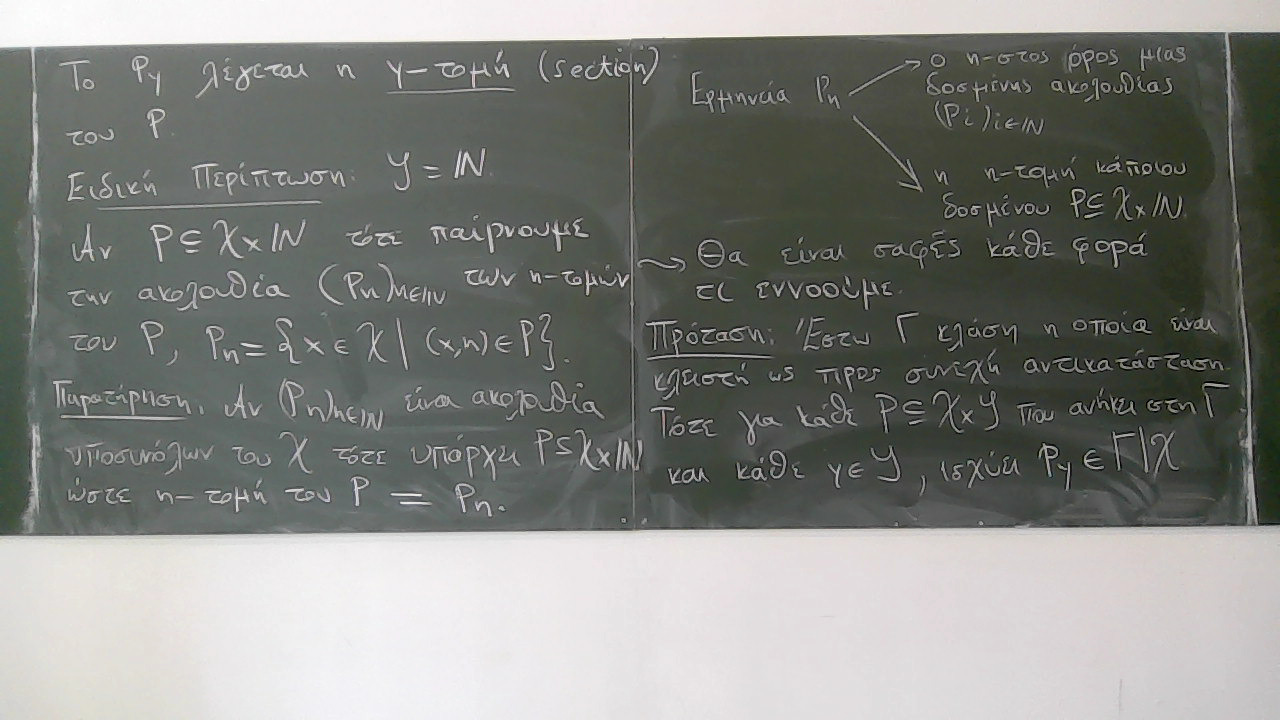 Το P_y λέγεται η y-τομή (section)
του P.
Ειδική Περίπτωση: Y = ℕ.
Αν P ⊆ X × ℕ τότε παίρνουμε
την ακολουθία (P_n)_{n∈ℕ} των n-τομών
του P, P_n = {x ∈ X | (x,n) ∈ P}.
Παρατήρηση. Αν (P_n)_{n∈ℕ} είναι ακολουθία
υποσυνόλων του X τότε υπάρχει P ⊆ X × ℕ
ώστε n-τομή του P = P_n.
Ερμηνεία P_n
→ ο n-στος όρος μιας
δοσμένης ακολουθίας
(P_i)_{i∈ℕ}
→ η n-τομή κάποιου
δοσμένου P ⊆ X × ℕ.
⇝ Θα είναι σαφές κάθε φορά
τι εννοούμε.
Πρόταση: Έστω Γ κλάση η οποία είναι
κλειστή ως προς συνεχή αντικατάσταση.
Τότε για κάθε P ⊆ X × Y που ανήκει στη Γ
και κάθε y ∈ Y, ισχύει P_y ∈ Γ|X